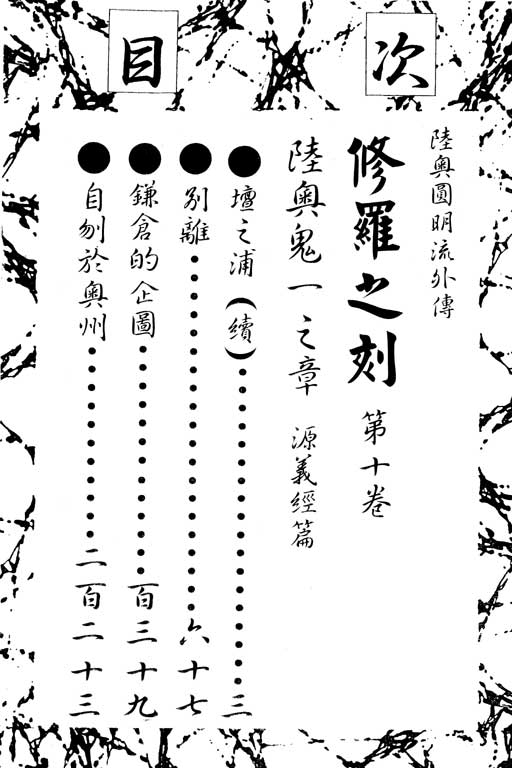 目次
陸奧圓明流外傳
修羅之刻 第十卷
陸奧鬼一之章 源義經篇
●壇之浦（續）••••••••••••••••••••••••三
●別離••••••••••••••••••••••••••六十七
●鎌倉的企圖•••••••••••••••••百三十九
●自刎於奧州••••••••••••••二百二十三